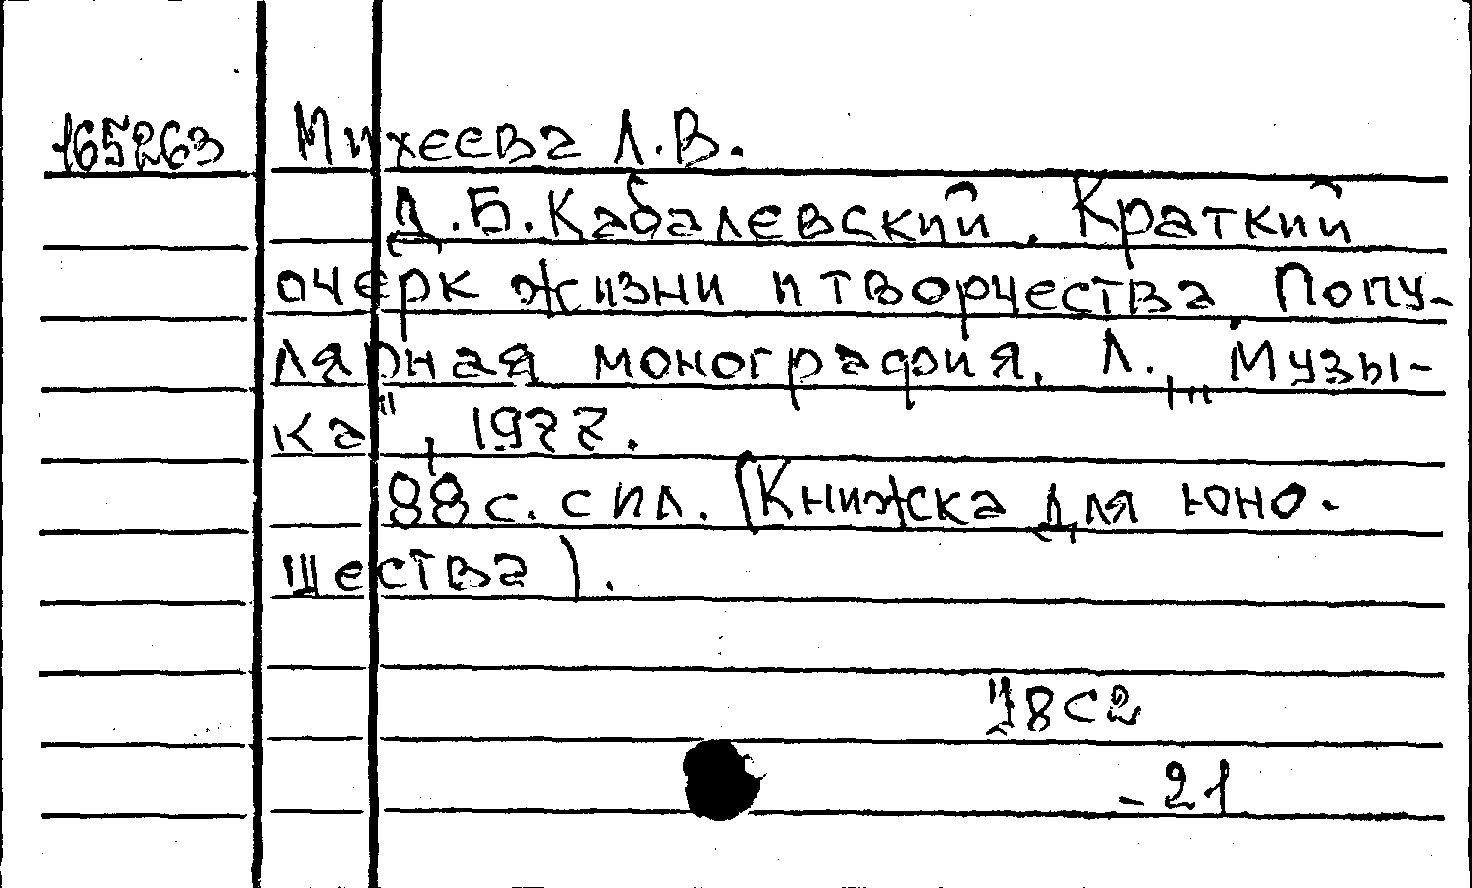 165263 Михеева Л.В.
Д.Б.Кабалевский. Краткий
очерк жизни и творчества. Попу-
лярная монография. Л., „Музы-
ка", 1977.
88 с. с ил. (Книжка для юно-
шества).
78с2
-21